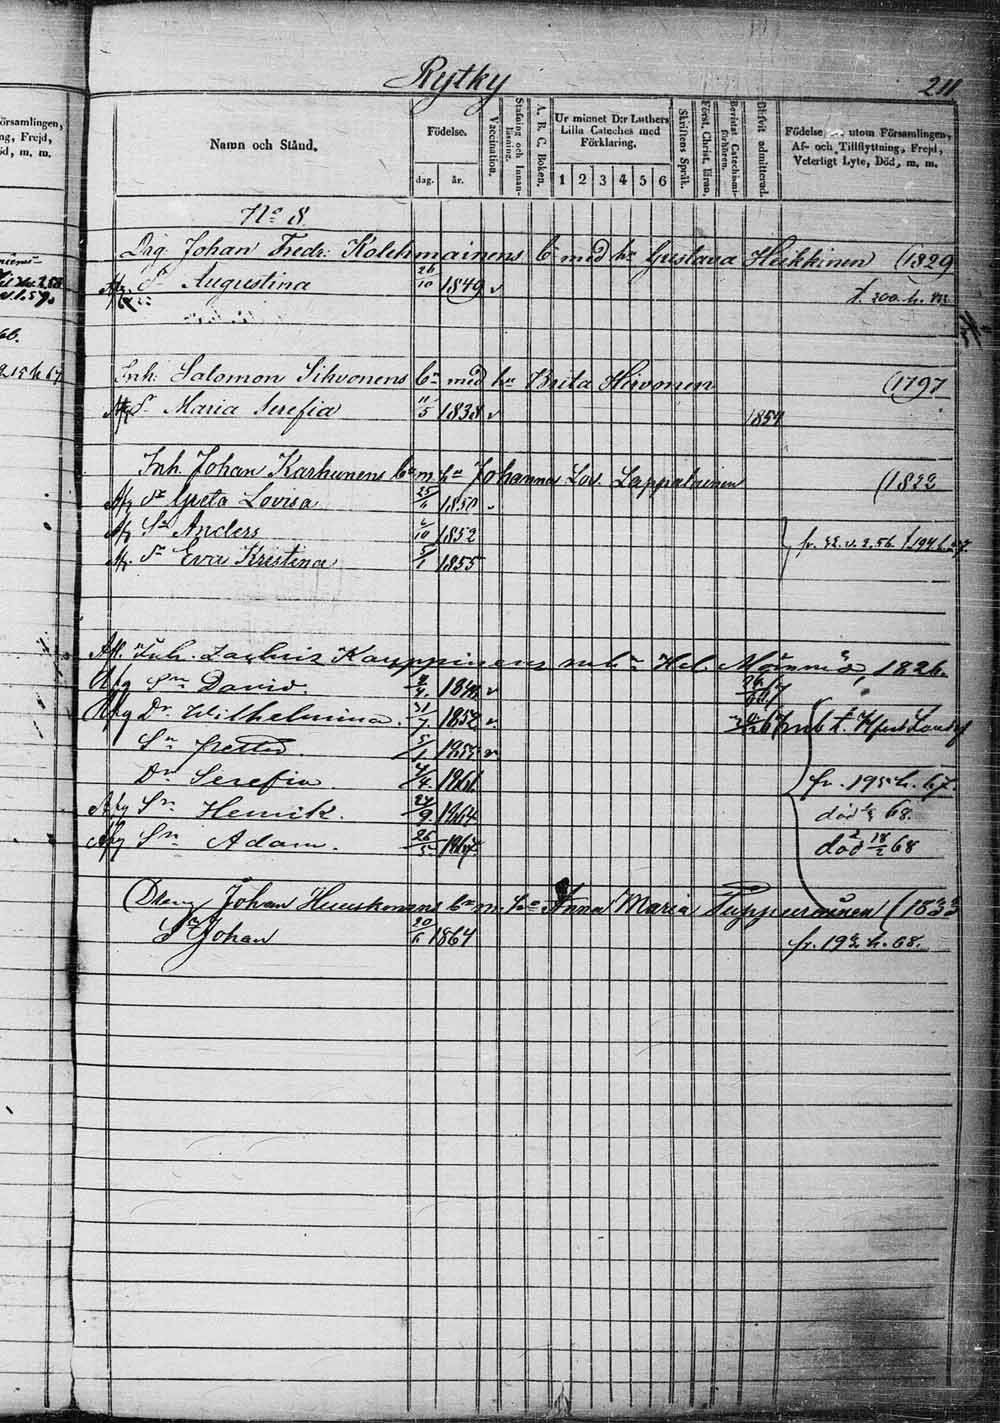 Rytky
211
örsamlingen,
ng, Frejd,
öd, m. m.
Namn och Stånd.
Födelse.
dag. år.
Vaccination.
Stafning och Innanläsning.
A. B. C. Boken.
Ur minnet D:r Luthers Lilla Cateches med Förklaring.
1 2 3 4 5 6
Skriftens Språk.
Först. Christ. Läran.
Bevistat Catechismiförhören.
Blifvit admitterad.
Födelse utom Församlingen, Af- och Tillflyttning, Frejd, Veterligt Lyte, Död, m. m.
No 8.
Drg Johan Fredr: Kolehmainens b med hu Gustava Heikkinen (1829
Afg. Dr Augustina 26/10 1849 v t. 200. h. m
Inh: Salomon Sihvonens bn med hu Brita Hirvonen (1797
Afg Dr Maria Serefia 11/5 1838 v 1854
Inh. Johan Karhunens bn m hu Johanna Lov. Lappalainen (1822
Afg Dr Greta Lovisa 25/6 1850 v
Afg Sn Anders 2/10 1852
fr. 22. v. 2. 56. t. 194. h. 57.
Afg. Dr Eva Kristina 5/1 1855
Afl. Inh. Zachris Kauppinens m hu Hel. 1826.
Afg Sn David. 1848 v
Afg Dr Wilhelmina. 31/7 1852 v.
Sn Petter. 5/1 1855 v
Dr Serefia 4/4 1861 fr. 195 h. 67.
Afg Sn Henrik. 24/9 1864 död 68.
Afg Sn Adam. 26/5 död 18/2 68
Dreng Johan Huuskonens bn m. hu Anna Maria Tuppurainen (1833
Sn Johan 20/6 1864 fr. 192 h. 68.